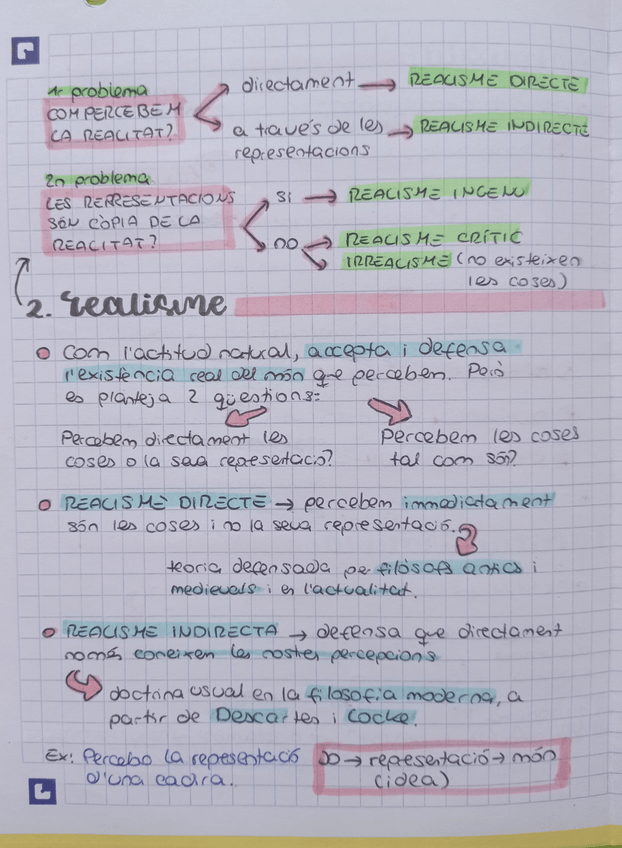 1r problema
COM PERCEBEM
LA REALITAT?
directament → REALISME DIRECTE
a través de les → REALISME INDIRECTE
representacions
2n problema
LES REPRESENTACIONS
SÓN CÒPIA DE LA
REALITAT?
SI → REALISME INGENU
NO → REALISME CRÍTIC
IRREALISME (no existeixen
les coses)
2. realisme
Com l'actitud natural, accepta i defensa
l'existència real del món que percebem. Però
es planteja 2 qüestions:
Percebem directament les
coses o la seva representació?
Percebem les coses
tal com són?
REALISME DIRECTE → percebem immediatament
són les coses i no la seva representació.
teoria defensada per filòsofs antics i
medievals i en l'actualitat.
REALISME INDIRECTA → defensa que directament
només coneixen les nostres percepcions
doctrina usual en la filosofia moderna, a
partir de Descartes i Locke.
Ex: Percebo la representació
d'una cadira.
JO → representació → món
(idea)